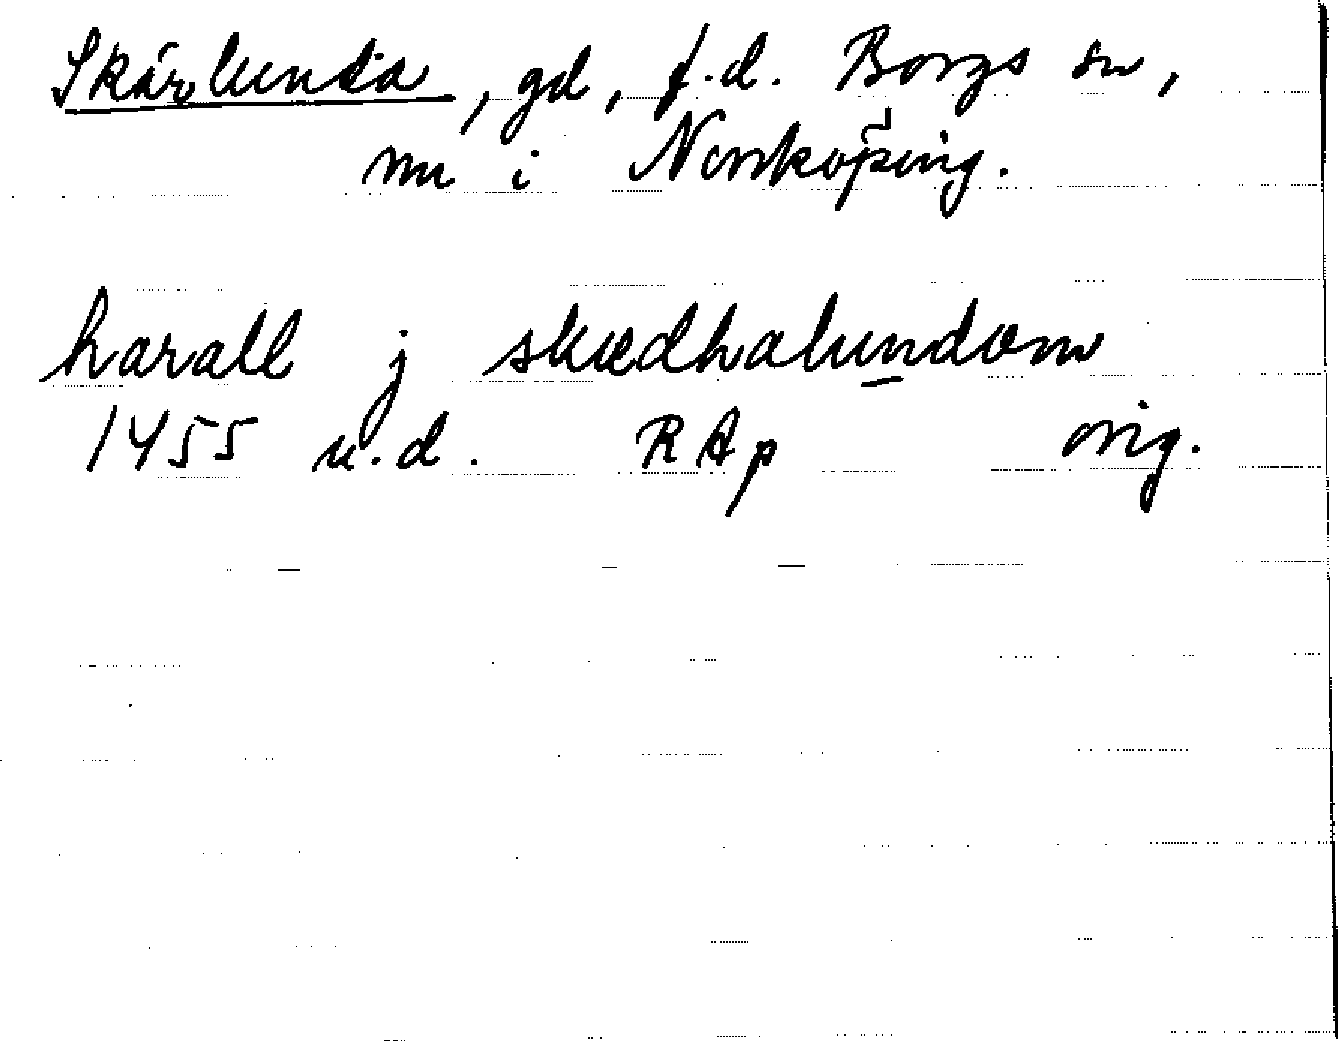 Skärlunda, gd, f.d. Borgs sn,
nu i Norrköping.
harall j skædhalundom
1455 u.d. RAp orig.